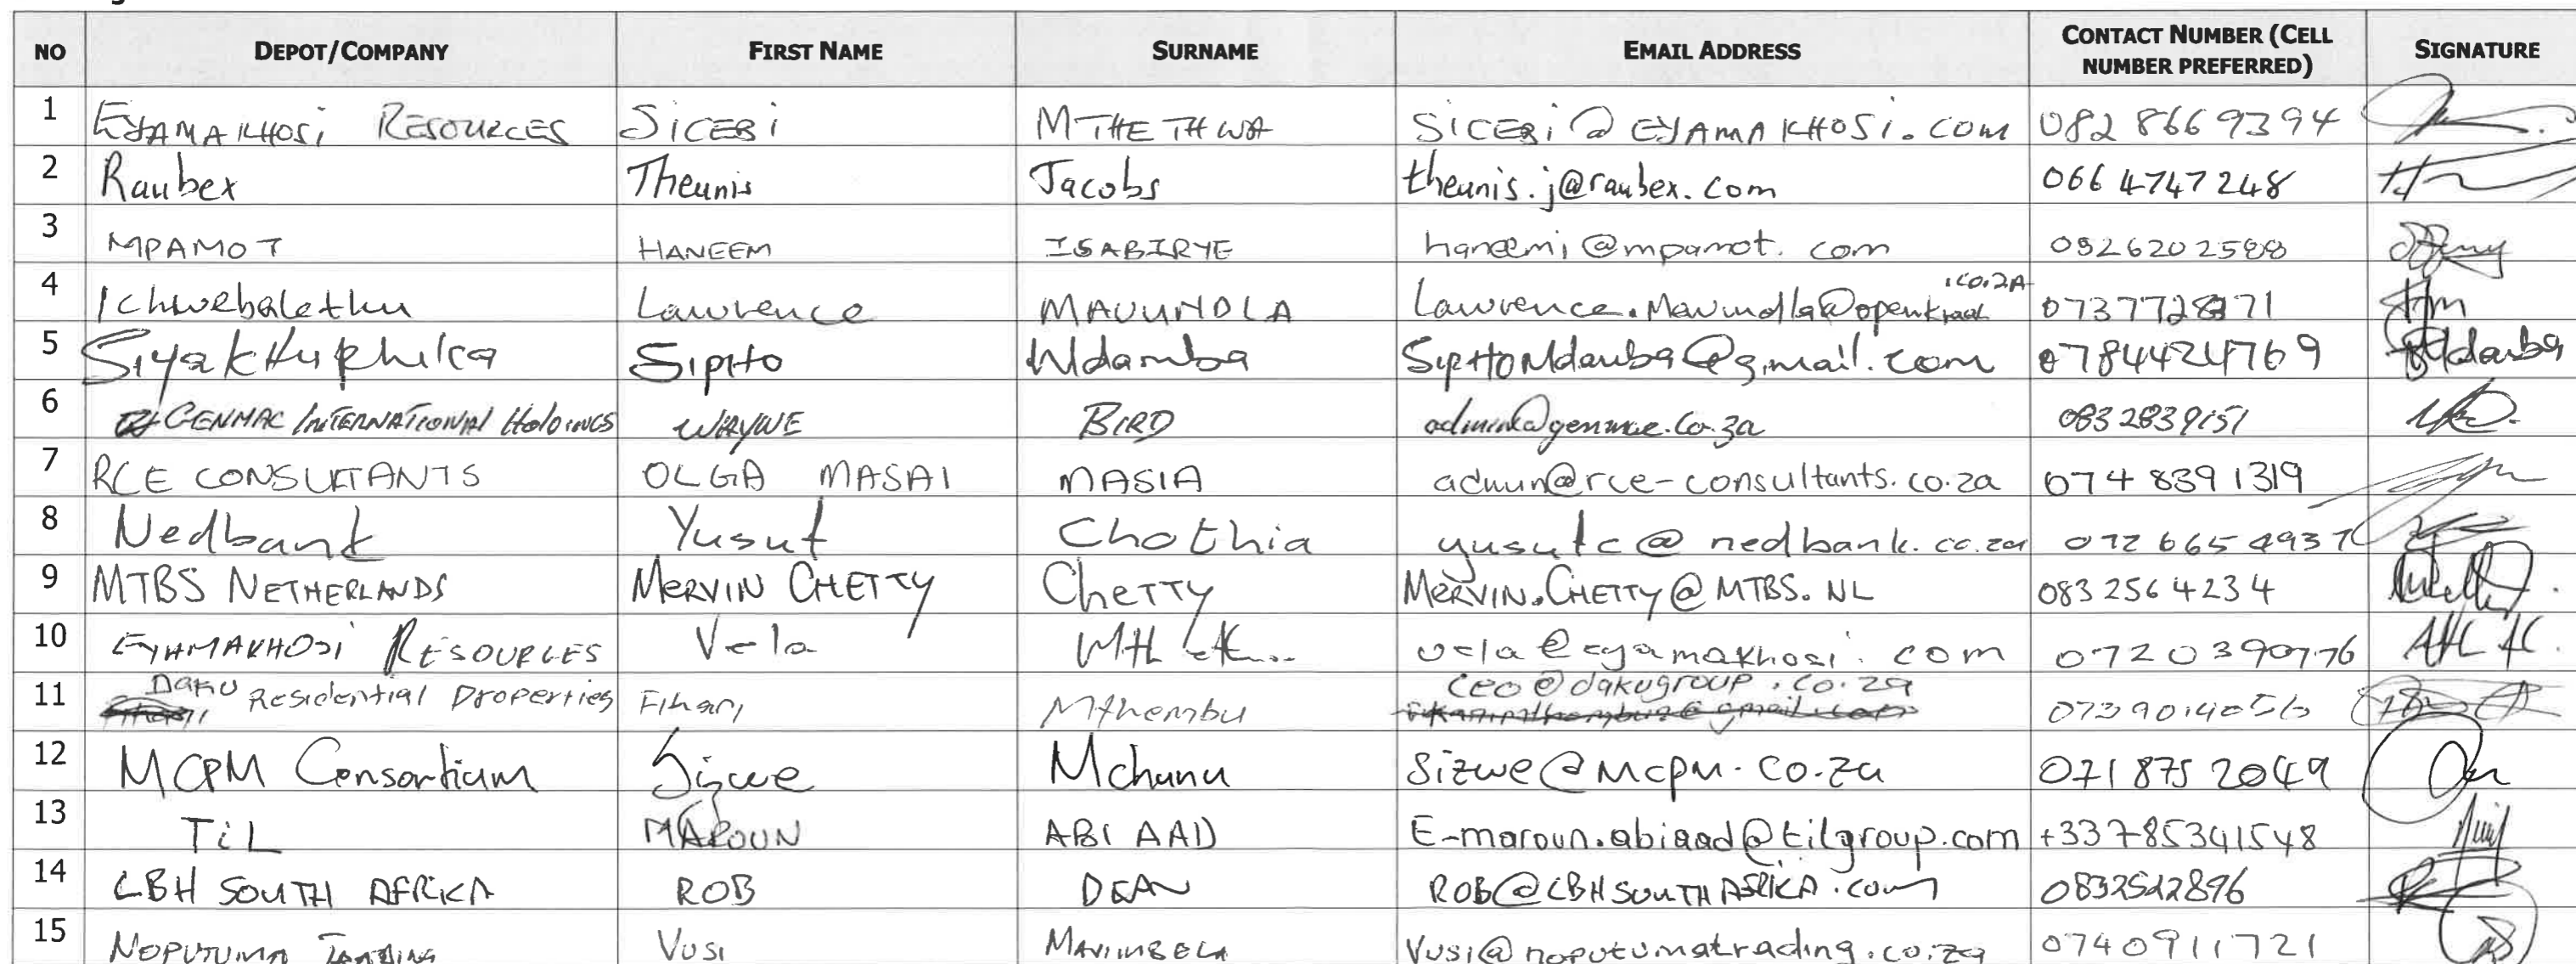 NO DEPOT/COMPANY FIRST NAME SURNAME EMAIL ADDRESS CONTACT NUMBER (CELL NUMBER PREFERRED) SIGNATURE
1 EYAMAKHOSi RESOURCES SiCEBi MTHETHWA SiCEBi@EYAMAKHOSi.COM 082 866 9394
2 Raubex Theunis Jacobs theunis.j@raubex.com 066 4747 248
3 MPAMOT HANEEM ISABIRYE haneemi@mpamot.com 0826202588
4 Ichwebalethu Lawrence MAVUNDLA Lawrence.Mavundla@openkraal.co.ZA
5 SiyakHuphuka SipHo Ndamba SipHoNdamba@gmail.com 0784424769
6 GENMAC INTERNATIONAL HOLDINGS WAYNE BIRD admin@genmac.co.za 0832839151
7 RCE CONSULTANTS OLGA MASAI MASIA admin@rce-consultants.co.za 074 839 1319
8 Nedbank Yusuf Chothia yusufc@nedbank.co.za 072 665 4937
9 MTBS NETHERLANDS MERVIN CHETTY CHETTY MERVIN.CHETTY@MTBS.NL 083 256 4234
10 EYAMAKHOSi RESOURCES Vela vela@eyamakhosi.com 0720390776
11 Daku Residential Properties Fihani Mthembu ceo@dakugroup.co.za
12 MCPM Consortium Sizwe Mchunu Sizwe@Mcpm.co.za 071 875 2049
13 TiL MAROUN ABI AAD E-maroun.abiaad@tilgroup.com +33785341548
14 LBH SOUTH AFRICA ROB DEAN ROB@LBHSOUTHAFRICA.com 0832522896
15 NOPUTUMA TRADING VUSI MAVIMBELA Vusi@noputumatrading.co.za 0740911721